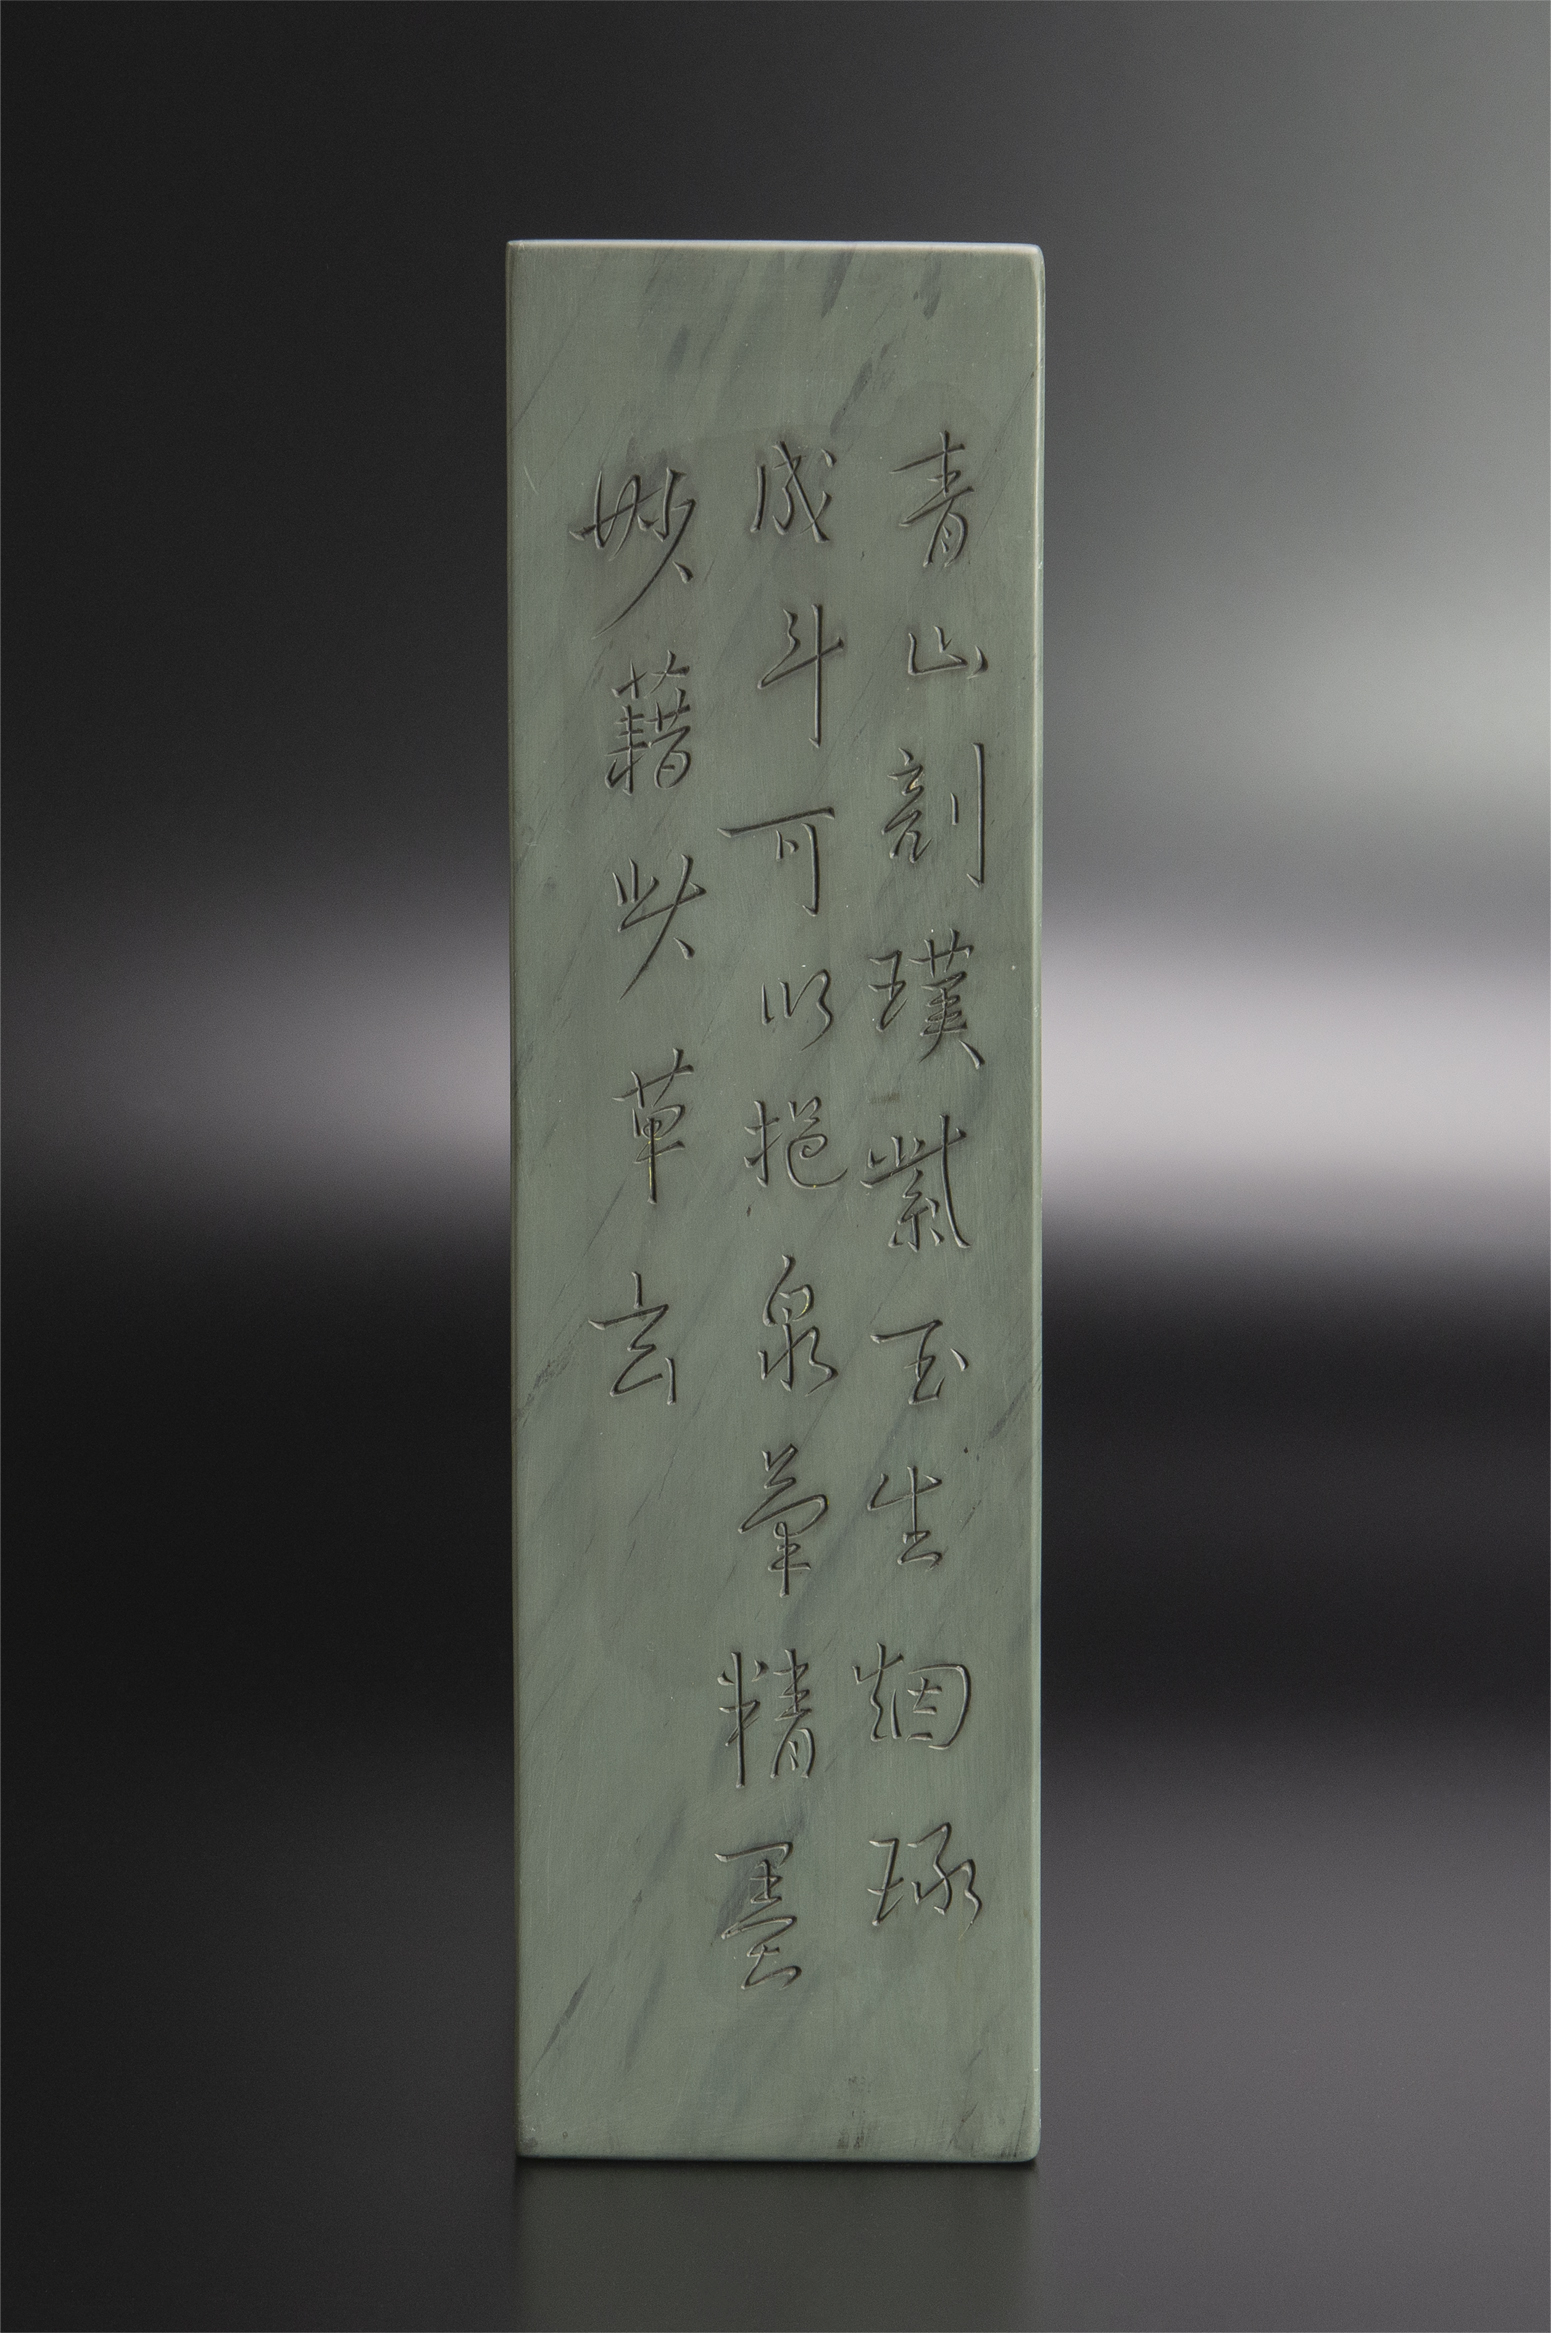 青山剖璞紫玉生烟琢
成斗可以挹泉筆精墨
妙藉此草玄